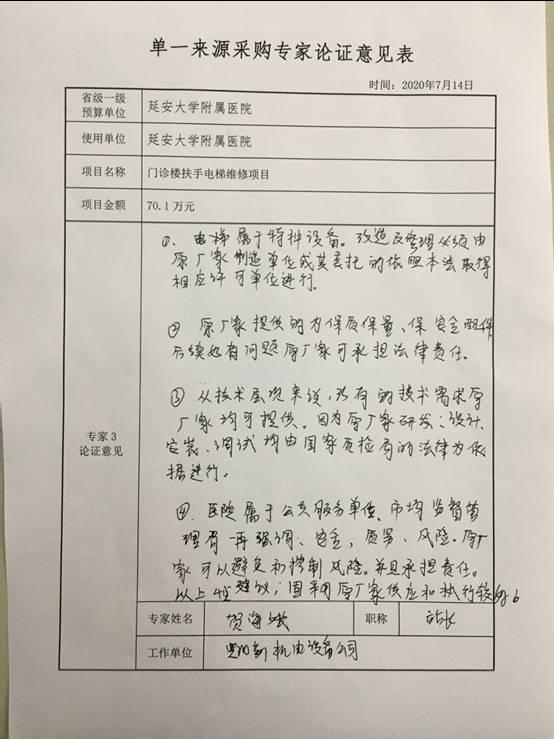 单一来源采购专家论证意见表
时间：2020年7月14日
省级一级
预算单位
延安大学附属医院
使用单位
延安大学附属医院
项目名称
门诊楼扶手电梯维修项目
项目金额
70.1 万元
专家 3
论证意见
①、电梯属于特种设备。改造及管理必须由
原厂家制造单位或其委托的依照本法取得
相应许可单位进行。
② 原厂家提供的为保质保量、保安全配件
后续如有问题原厂家可承担法律责任。
③ 从技术层次来说，所有的技术需求原
厂家均可提供。因为原厂家研发；设计、
安装、调试均由国家质检局的法律为依
据进行。
④. 医院属于公共服务单位、市场监督管
理局一再强调、安全，质量、风险。原厂
家可以避免和控制风险。并且承担责任。
以上 建议；因采用原厂家供应和执行较好。
专家姓名
贺海
职称
站长
工作单位
机电设备公司